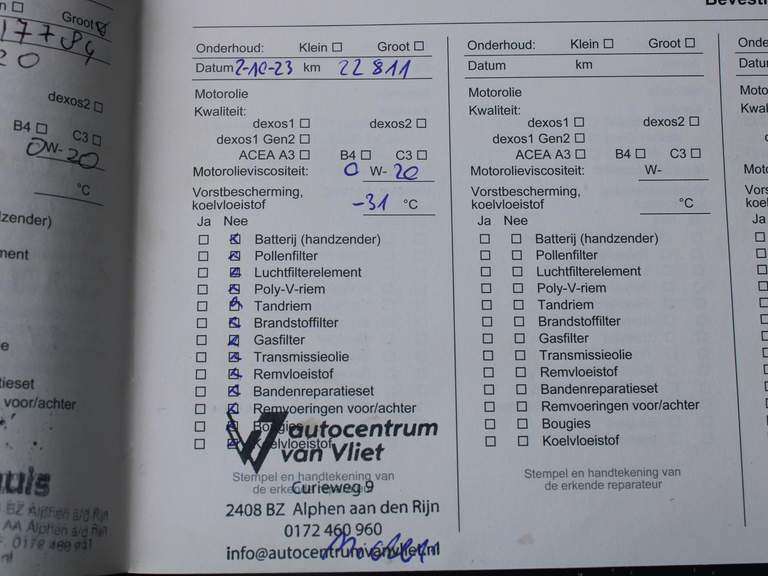 Groot
17784
20
dexos2
B4 C3
0W-20
°C
zender)
ment
e
ieset
voor/achter
uis
BZ Alphen a/d Rijn
AA Alphen a/d Rijn
nl
Bevesti
Onderhoud: Klein Groot
Datum 2-10-23 km 22811
Motorolie
Kwaliteit:
dexos1 dexos2
dexos1 Gen2
ACEA A3 B4 C3
Motorolieviscositeit: 0 W- 20
Vorstbescherming,
koelvloeistof -31 °C
Ja Nee
Batterij (handzender)
Pollenfilter
Luchtfilterelement
Poly-V-riem
Tandriem
Brandstoffilter
Gasfilter
Transmissieolie
Remvloeistof
Bandenreparatieset
Remvoeringen voor/achter
Bougies
Koelvloeistof
autocentrum
van Vliet
Stempel en handtekening van
de erkende reparateur
Curieweg 9
2408 BZ Alphen aan den Rijn
0172 460 960
info@autocentrumvanvliet.nl
Onderhoud: Klein Groot
Datum km
Motorolie
Kwaliteit:
dexos1 dexos2
dexos1 Gen2
ACEA A3 B4 C3
Motorolieviscositeit: W-
Vorstbescherming,
koelvloeistof °C
Ja Nee
Batterij (handzender)
Pollenfilter
Luchtfilterelement
Poly-V-riem
Tandriem
Brandstoffilter
Gasfilter
Transmissieolie
Remvloeistof
Bandenreparatieset
Remvoeringen voor/achter
Bougies
Koelvloeistof
Stempel en handtekening van
de erkende reparateur
Onde
Datu
Moto
Kwal
Moto
Vors
koel
Ja